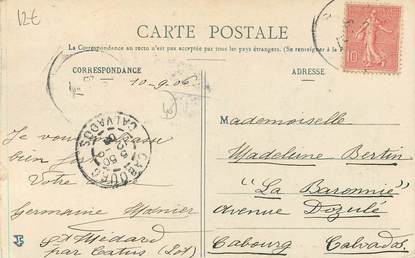 12€
CARTE POSTALE
La Correspondance au recto n'est pas acceptée par tous les pays étrangers. (Se renseigner à la P
CORRESPONDANCE
ADRESSE
10-9-06
10
CABOURG
CALVADOS
Mademoiselle
Madeleine Bertin
"La Baronnie"
Avenue Dozulé
Cabourg Calvados
Je vous
bien
Votre
Germaine Manier
St Médard
par Catus (Lot)